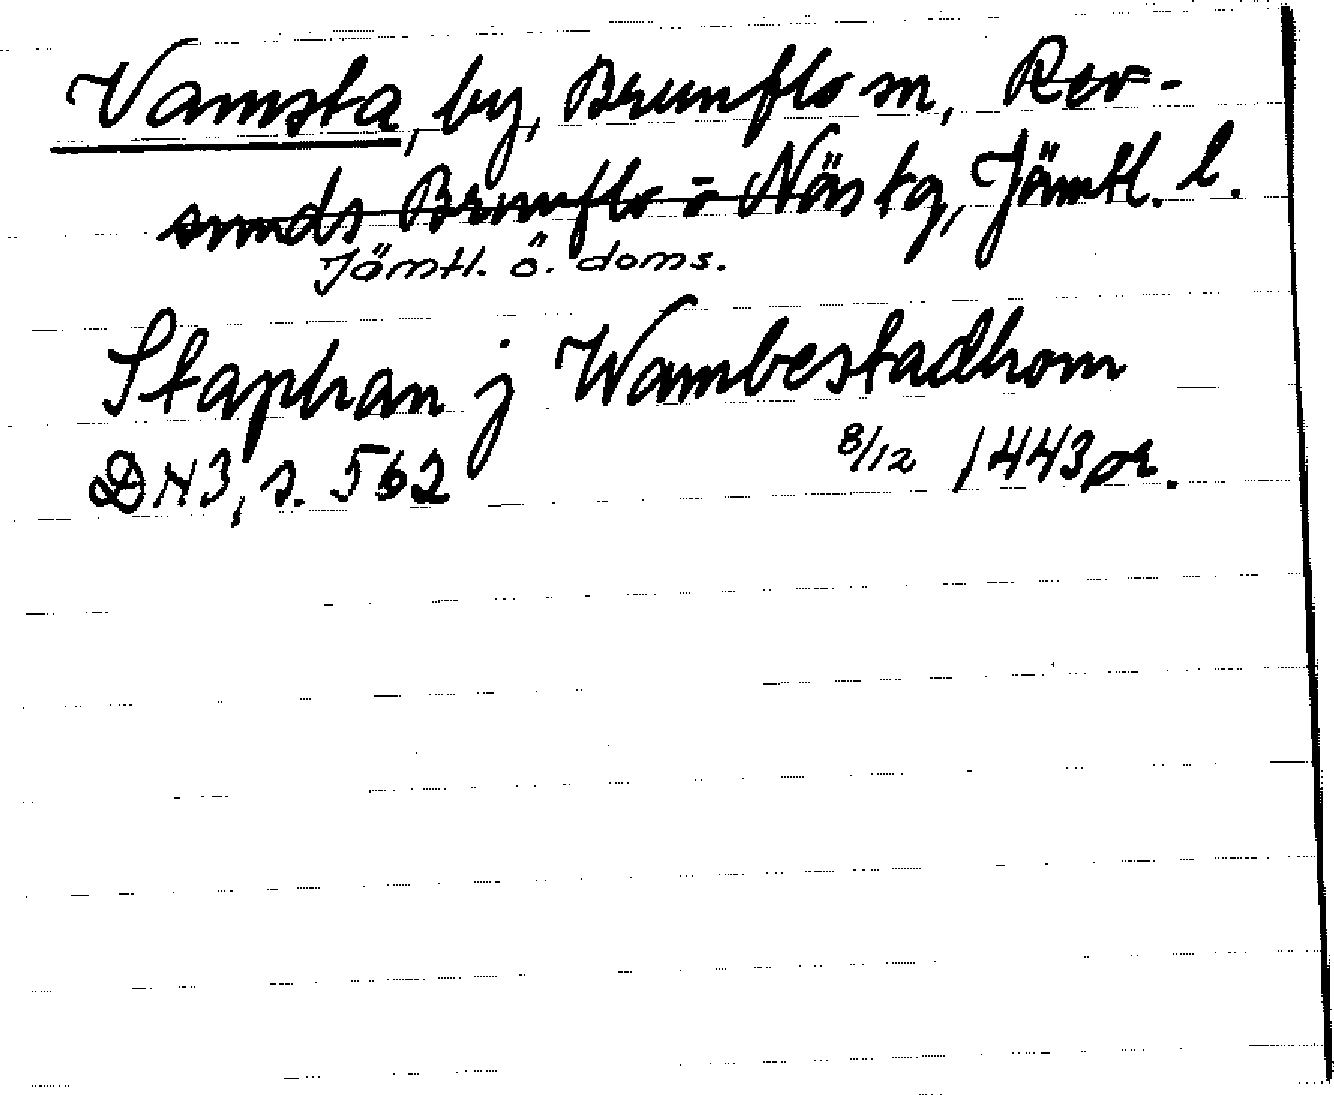 Vamsta, by, Brunflo sn, Rev-
sunds Brunflo o Näs tg, Jämtl. l.
Jämtl. ö. doms.
Staphan j Wambestadhom
DN3, s. 562 8/12 1443 or.